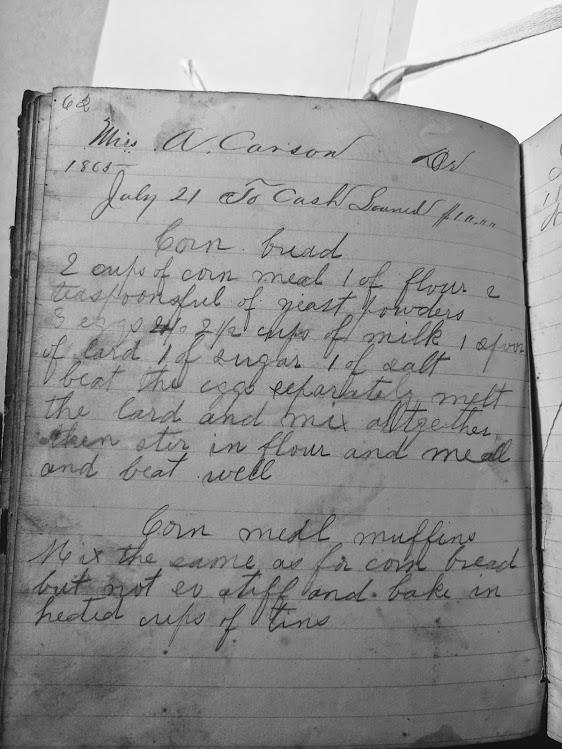 62
Mrs. A. Carson Dr
1865
July 21 To Cash Loaned $10.00
Corn bread
2 cups of corn meal 1 of flour 2
teaspoonsful of yeast powders
3 eggs 2 1/2 cups of milk 1 spoon
of lard 1 of sugar 1 of salt
beat the eggs separately melt
the lard and mix altgether
then stir in flour and meal
and beat well
Corn meal muffins
Mix the same as for corn bread
but not so stiff and bake in
heted cups of tins